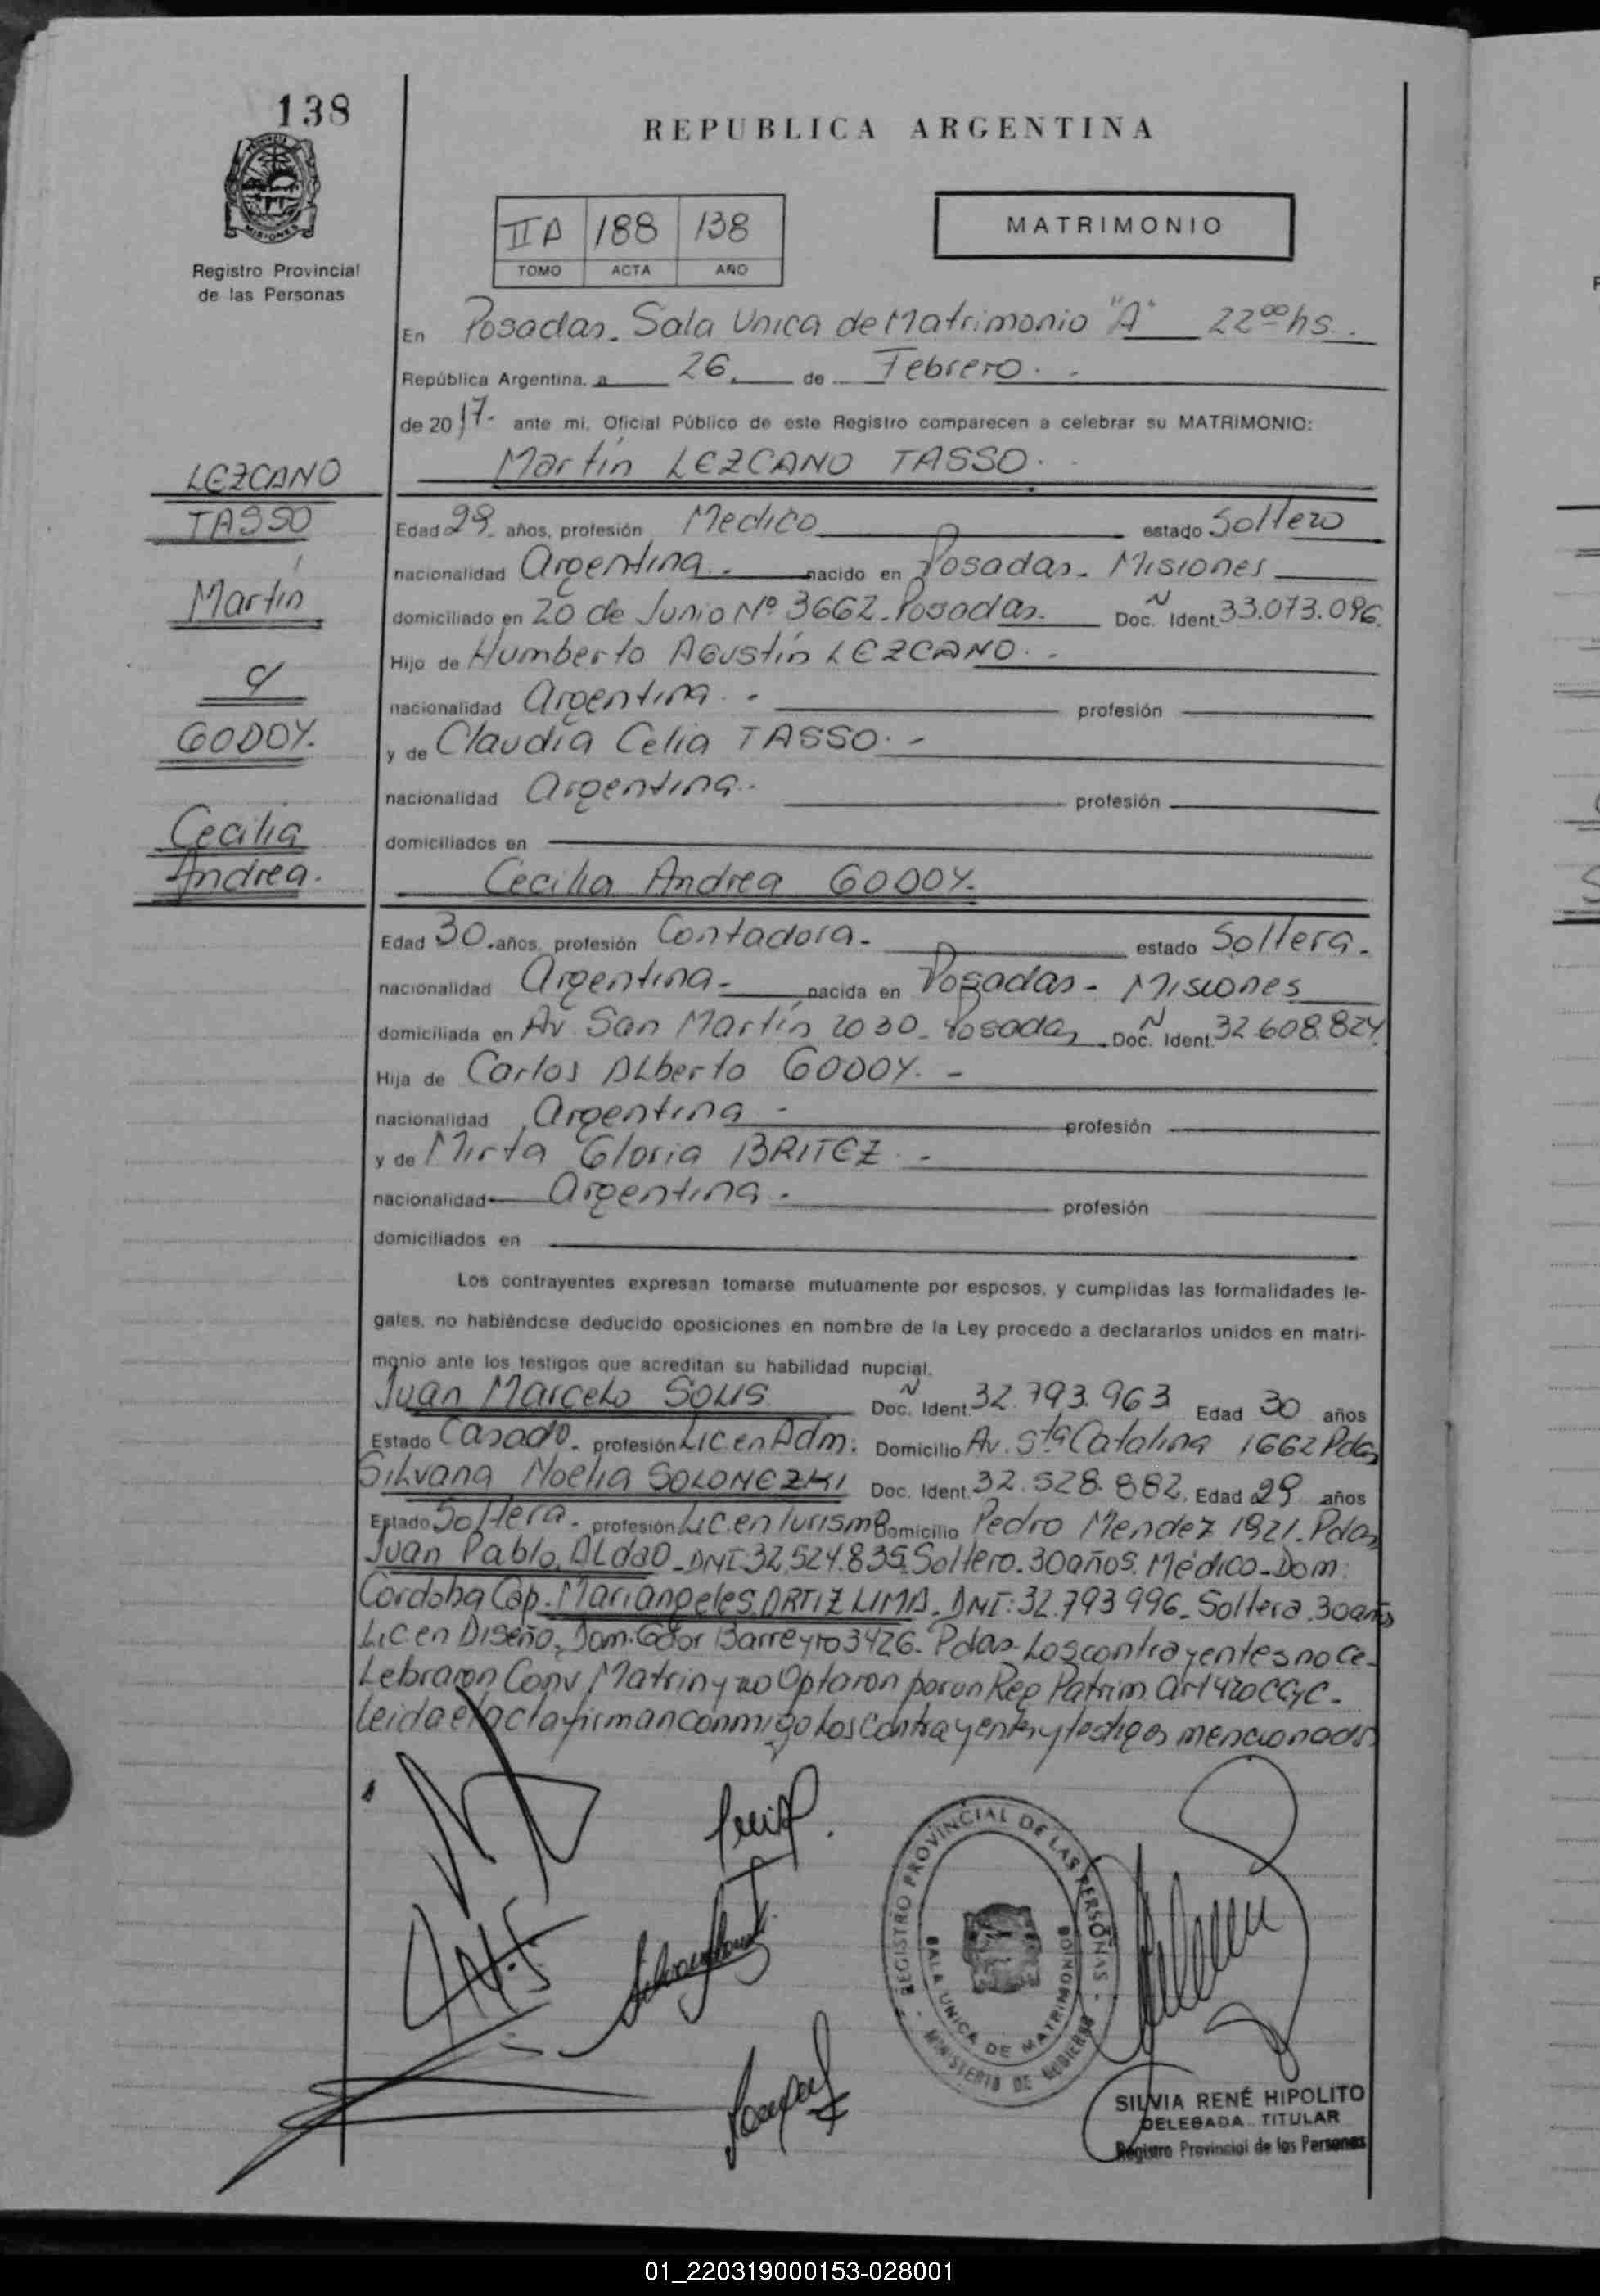 138
REPUBLICA ARGENTINA
MISIONES
Registro Provincial
de las Personas
IIA 188 138
TOMO ACTA AÑO
MATRIMONIO
En Posadas. Sala Unica de Matrimonio "A" 22⁰⁰hs.
República Argentina, a 26 de Febrero.-
de 2017- ante mi, Oficial Público de este Registro comparecen a celebrar su MATRIMONIO:
LEZCANO
TASSO
Martín
y
GODOY.
Cecilia
Andrea.
Martín LEZCANO TASSO.-
Edad 29 años, profesión Medico estado Soltero
nacionalidad Argentina.- nacido en Posadas- Misiones
domiciliado en 20 de Junio Nº 3662. Posadas. Doc. Ident. 33.073.096.
Hijo de Humberto Agustín LEZCANO.-
nacionalidad Argentina.- profesión
y de Claudia Celia TASSO.-
nacionalidad Argentina.- profesión
domiciliados en
Cecilia Andrea GODOY.
Edad 30. años, profesión Contadora.- estado Soltera.
nacionalidad Argentina.- nacida en Posadas- Misiones
domiciliada en Av. San Martín 2030- Posadas Doc. Ident. 32.608.824.
Hija de Carlos Alberto GODOY.-
nacionalidad Argentina- profesión
y de Mirta Gloria BRITEZ.-
nacionalidad Argentina.- profesión
domiciliados en
Los contrayentes expresan tomarse mutuamente por esposos, y cumplidas las formalidades le-
gales, no habiéndose deducido oposiciones en nombre de la Ley procedo a declararlos unidos en matri-
monio ante los testigos que acreditan su habilidad nupcial.
Juan Marcelo SOLIS Doc. Ident. 32.793.963 Edad 30 años
Estado Casado. profesión Lic en Adm. Domicilio Av. Sta Catalina 1662 Pdas
Silvana Noelia SOLONEZKI Doc. Ident. 32.528.882. Edad 29 años
Estado Soltera. profesión Lic. en Turismo Domicilio Pedro Mendez 1921. Pdas
Juan Pablo. ALDAO- DNI 32.524.835. Soltero. 30 años. Médico- Dom:
Córdoba Cap. Mariangeles ORTIZ LIMA. DNI: 32.793 996- Soltera. 30 años
Lic en Diseño. Dom. Gdor Barreyro 3426- Pdas- Los contrayentes no ce-
lebraron Conv Matrim y no Optaron por un Reg Patrim art 420 CCyC-
leida el acta firman conmigo los contrayentes y testigos mencionados
REGISTRO PROVINCIAL DE LAS PERSONAS
SALA UNICA DE MATRIMONIOS
MINISTERIO DE GOBIERNO
SILVIA RENÉ HIPOLITO
DELEGADA TITULAR
Registro Provincial de las Personas
01_220319000153-028001